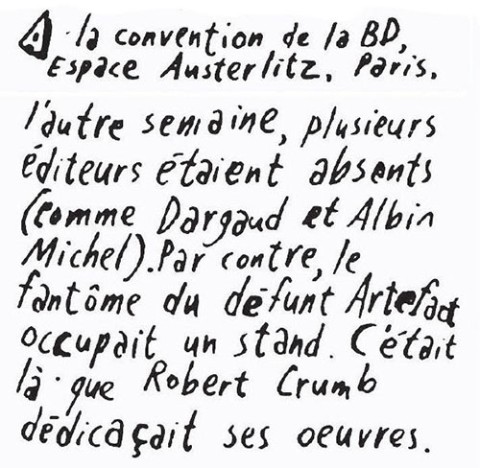 A la convention de la BD,
Espace Austerlitz, Paris,
l'autre semaine, plusieurs
éditeurs étaient absents
(comme Dargaud et Albin
Michel). Par contre, le
fantôme du défunt Artefact
occupait un stand. C'était
là que Robert Crumb
dédicaçait ses oeuvres.